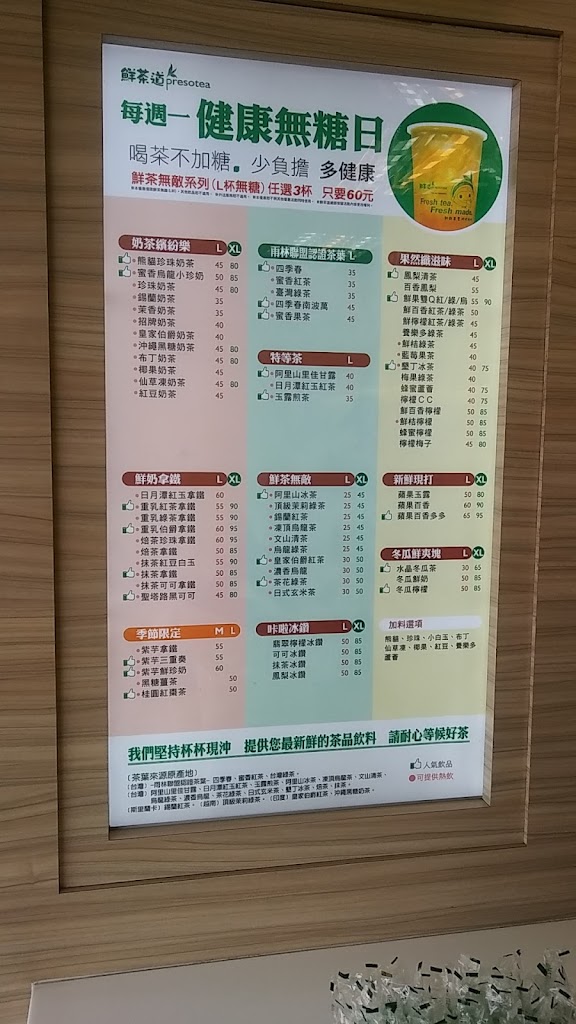 鮮茶道 presotea
每週一 健康無糖日
喝茶不加糖。少負擔 多健康
鮮茶無敵系列(L杯無糖)任選3杯 只要60元
Fresh tea
Fresh made
奶茶繽紛樂 L XL
熊貓珍珠奶茶 45 80
蜜香烏龍小珍奶 50 85
珍珠奶茶 45 80
錫蘭奶茶 35
茉香奶茶 35
招牌奶茶 40
皇家伯爵奶茶 40
沖繩黑糖奶茶 45 80
布丁奶茶 45 80
椰果奶茶 45
仙草凍奶茶 45 80
紅豆奶茶 45
雨林聯盟認證茶葉 L
四季春 35
蜜香紅茶 35
臺灣綠茶 35
四季春南波萬 45
蜜香果茶 45
特等茶 L
阿里山里佳甘露 40
日月潭紅玉紅茶 40
玉露煎茶 35
果然纖滋味 L XL
鳳梨清茶 45
百香鳳梨 55
鮮果雙Q紅/綠/烏 55 90
鮮百香紅茶/綠茶 50
鮮檸檬紅茶/綠茶 45
養樂多綠茶 45
鮮桔綠茶 45
藍莓果茶 40
墾丁冰茶 40 75
梅果綠茶 40
蜂蜜蘆薈 40 75
檸檬CC 40 75
鮮百香檸檬 50 85
鮮桔檸檬 50 85
蜂蜜檸檬 50 85
檸檬梅子 45 80
鮮奶拿鐵 L XL
日月潭紅玉拿鐵 60
重乳紅茶拿鐵 55 90
重乳綠茶拿鐵 55 90
重乳伯爵拿鐵 60 95
焙茶珍珠拿鐵 60 95
焙茶拿鐵 50 85
抹茶紅豆白玉 55 90
抹茶拿鐵 50 85
抹茶可可拿鐵 50 85
聖塔路黑可可 45 80
鮮茶無敵 L XL
阿里山冰茶 25 45
頂級茉莉綠茶 25 45
錫蘭紅茶 25 45
凍頂烏龍茶 25 45
文山清茶 25 45
烏龍綠茶 25 45
皇家伯爵紅茶 30 50
濃香烏龍 30 50
茶花綠茶 30 50
日式玄米茶 30 50
新鮮現打 L XL
蘋果玉露 50 80
蘋果百香 60 90
蘋果百香多多 65 95
冬瓜鮮爽塊 L XL
水晶冬瓜茶 30 65
冬瓜鮮奶 50 85
冬瓜檸檬 50 85
季節限定 M L
紫芋拿鐵 55
紫芋三重奏 55
紫芋鮮珍奶 60
黑糖薑茶 50
桂圓紅棗茶 50
咔啦冰鑽 L XL
翡翠檸檬冰鑽 50 85
可可冰鑽 50 85
抹茶冰鑽 50 85
鳳梨冰鑽 50 85
加料選項
熊貓、珍珠、小白玉、布丁
仙草凍、椰果、紅豆、養樂多
蘆薈
我們堅持杯杯現沖 提供您最新鮮的茶品飲料 請耐心等候好茶
人氣飲品
可提供熱飲
(茶葉來源原產地)
(台灣)-雨林聯盟認證茶葉- 四季春、蜜香紅茶、台灣綠茶。
(台灣) 阿里山里佳甘露、日月潭紅玉紅茶、玉露煎茶、阿里山冰茶、凍頂烏龍茶、文山清茶、
烏龍綠茶、濃香烏龍、茶花綠茶、日式玄米茶、墾丁冰茶、焙茶、抹茶。
(斯里蘭卡) 錫蘭紅茶。(越南) 頂級茉莉綠茶。(印度) 皇家伯爵紅茶、沖繩黑糖奶茶。